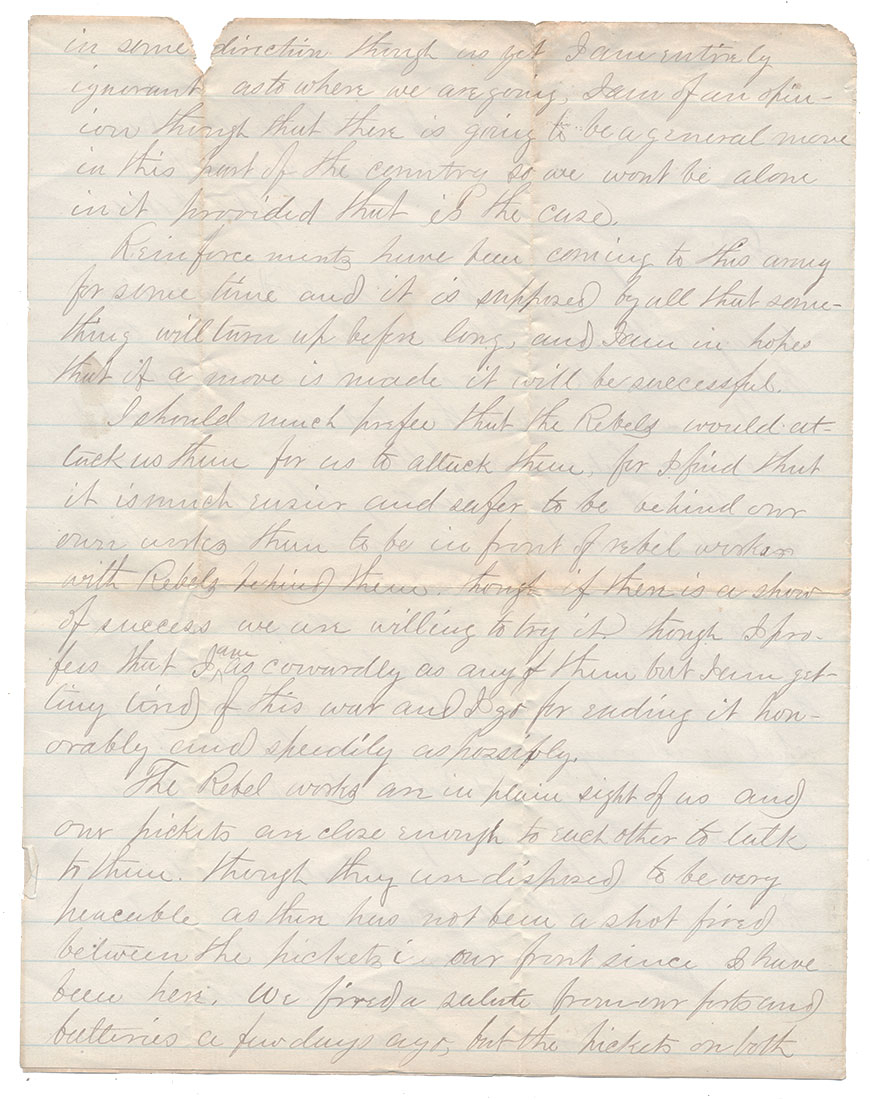 in some direction though as yet I am entirely
ignorant as to where we are going, I am of an opin-
ion though that there is going to be a general move
in this part of the country so we wont be alone
in it provided that is the case.
Reinforcements have been coming to this army
for some time and it is supposed by all that some-
thing will turn up before long, and I am in hopes
that if a move is made it will be successful.
I should much prefer that the Rebels would at-
tack us than for us to attack them, for I find that
it is much easier and safer to be behind our
own works than to be in front of rebel works
with Rebels behind them. though if there is a show
of success we are willing to try it though I pro-
fess that I am as cowardly as any of them but I am get-
ting tired of this war and I go for ending it hon-
orably and speedily as possibly.
The Rebel works are in plain sight of us and
our pickets are close enough to each other to talk
to them. though they are disposed to be very
peaceable as there has not been a shot fired
between the pickets i our front since I have
been here. We fired a salute from our forts and
batteries a few days ago, but the pickets on both